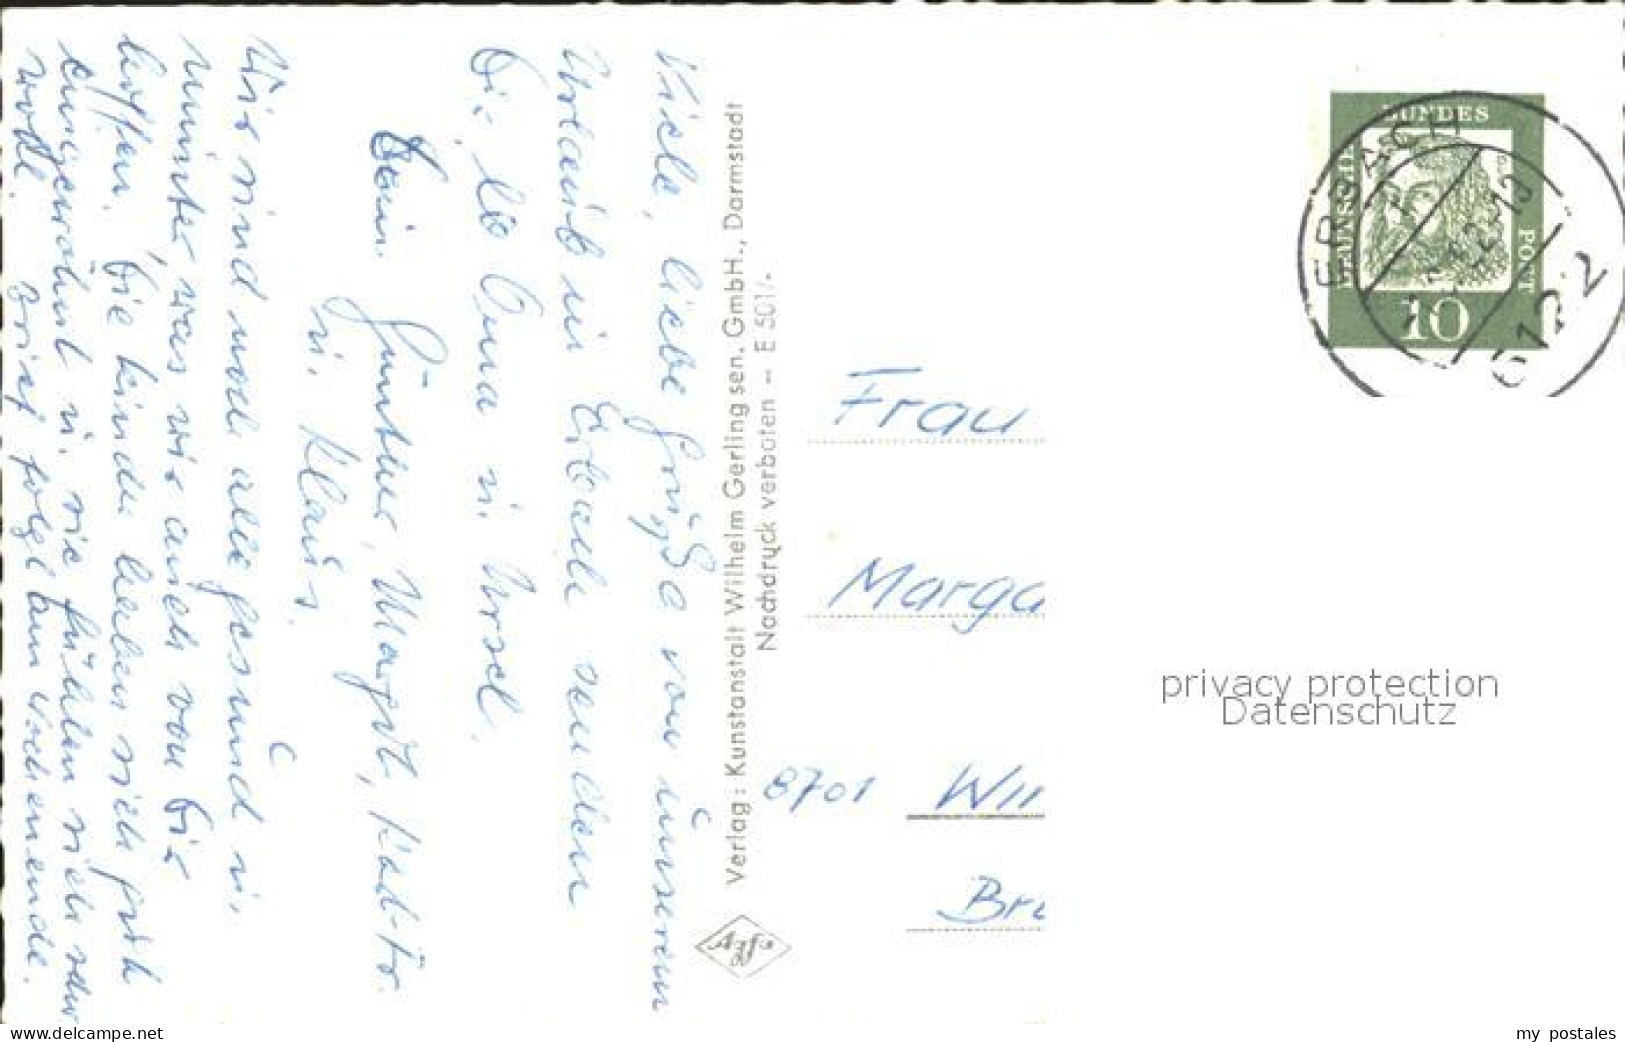 Viele, liebe Grüße von unserem
Urlaub in Erbach senden
Dir, lb Oma u. Ursel.
Dein Günther, Margot,
u. Klaus.
Wir sind noch alle gesund u.
munter, was wir auch von Dir
hoffen. Die Kinder haben sich gut
eingewöhnt u. sie fühlen sich sehr
wohl. Brief folgt am Wochenende.
Verlag: Kunstanstalt Wilhelm Gerling sen. GmbH., Darmstadt
Nachdruck verboten — E 501/-
Agfa
BUNDES
POST
10
ERBACH
6122
Frau
Marga
8701
privacy protection
Datenschutz
www.delcampe.net
my_postales